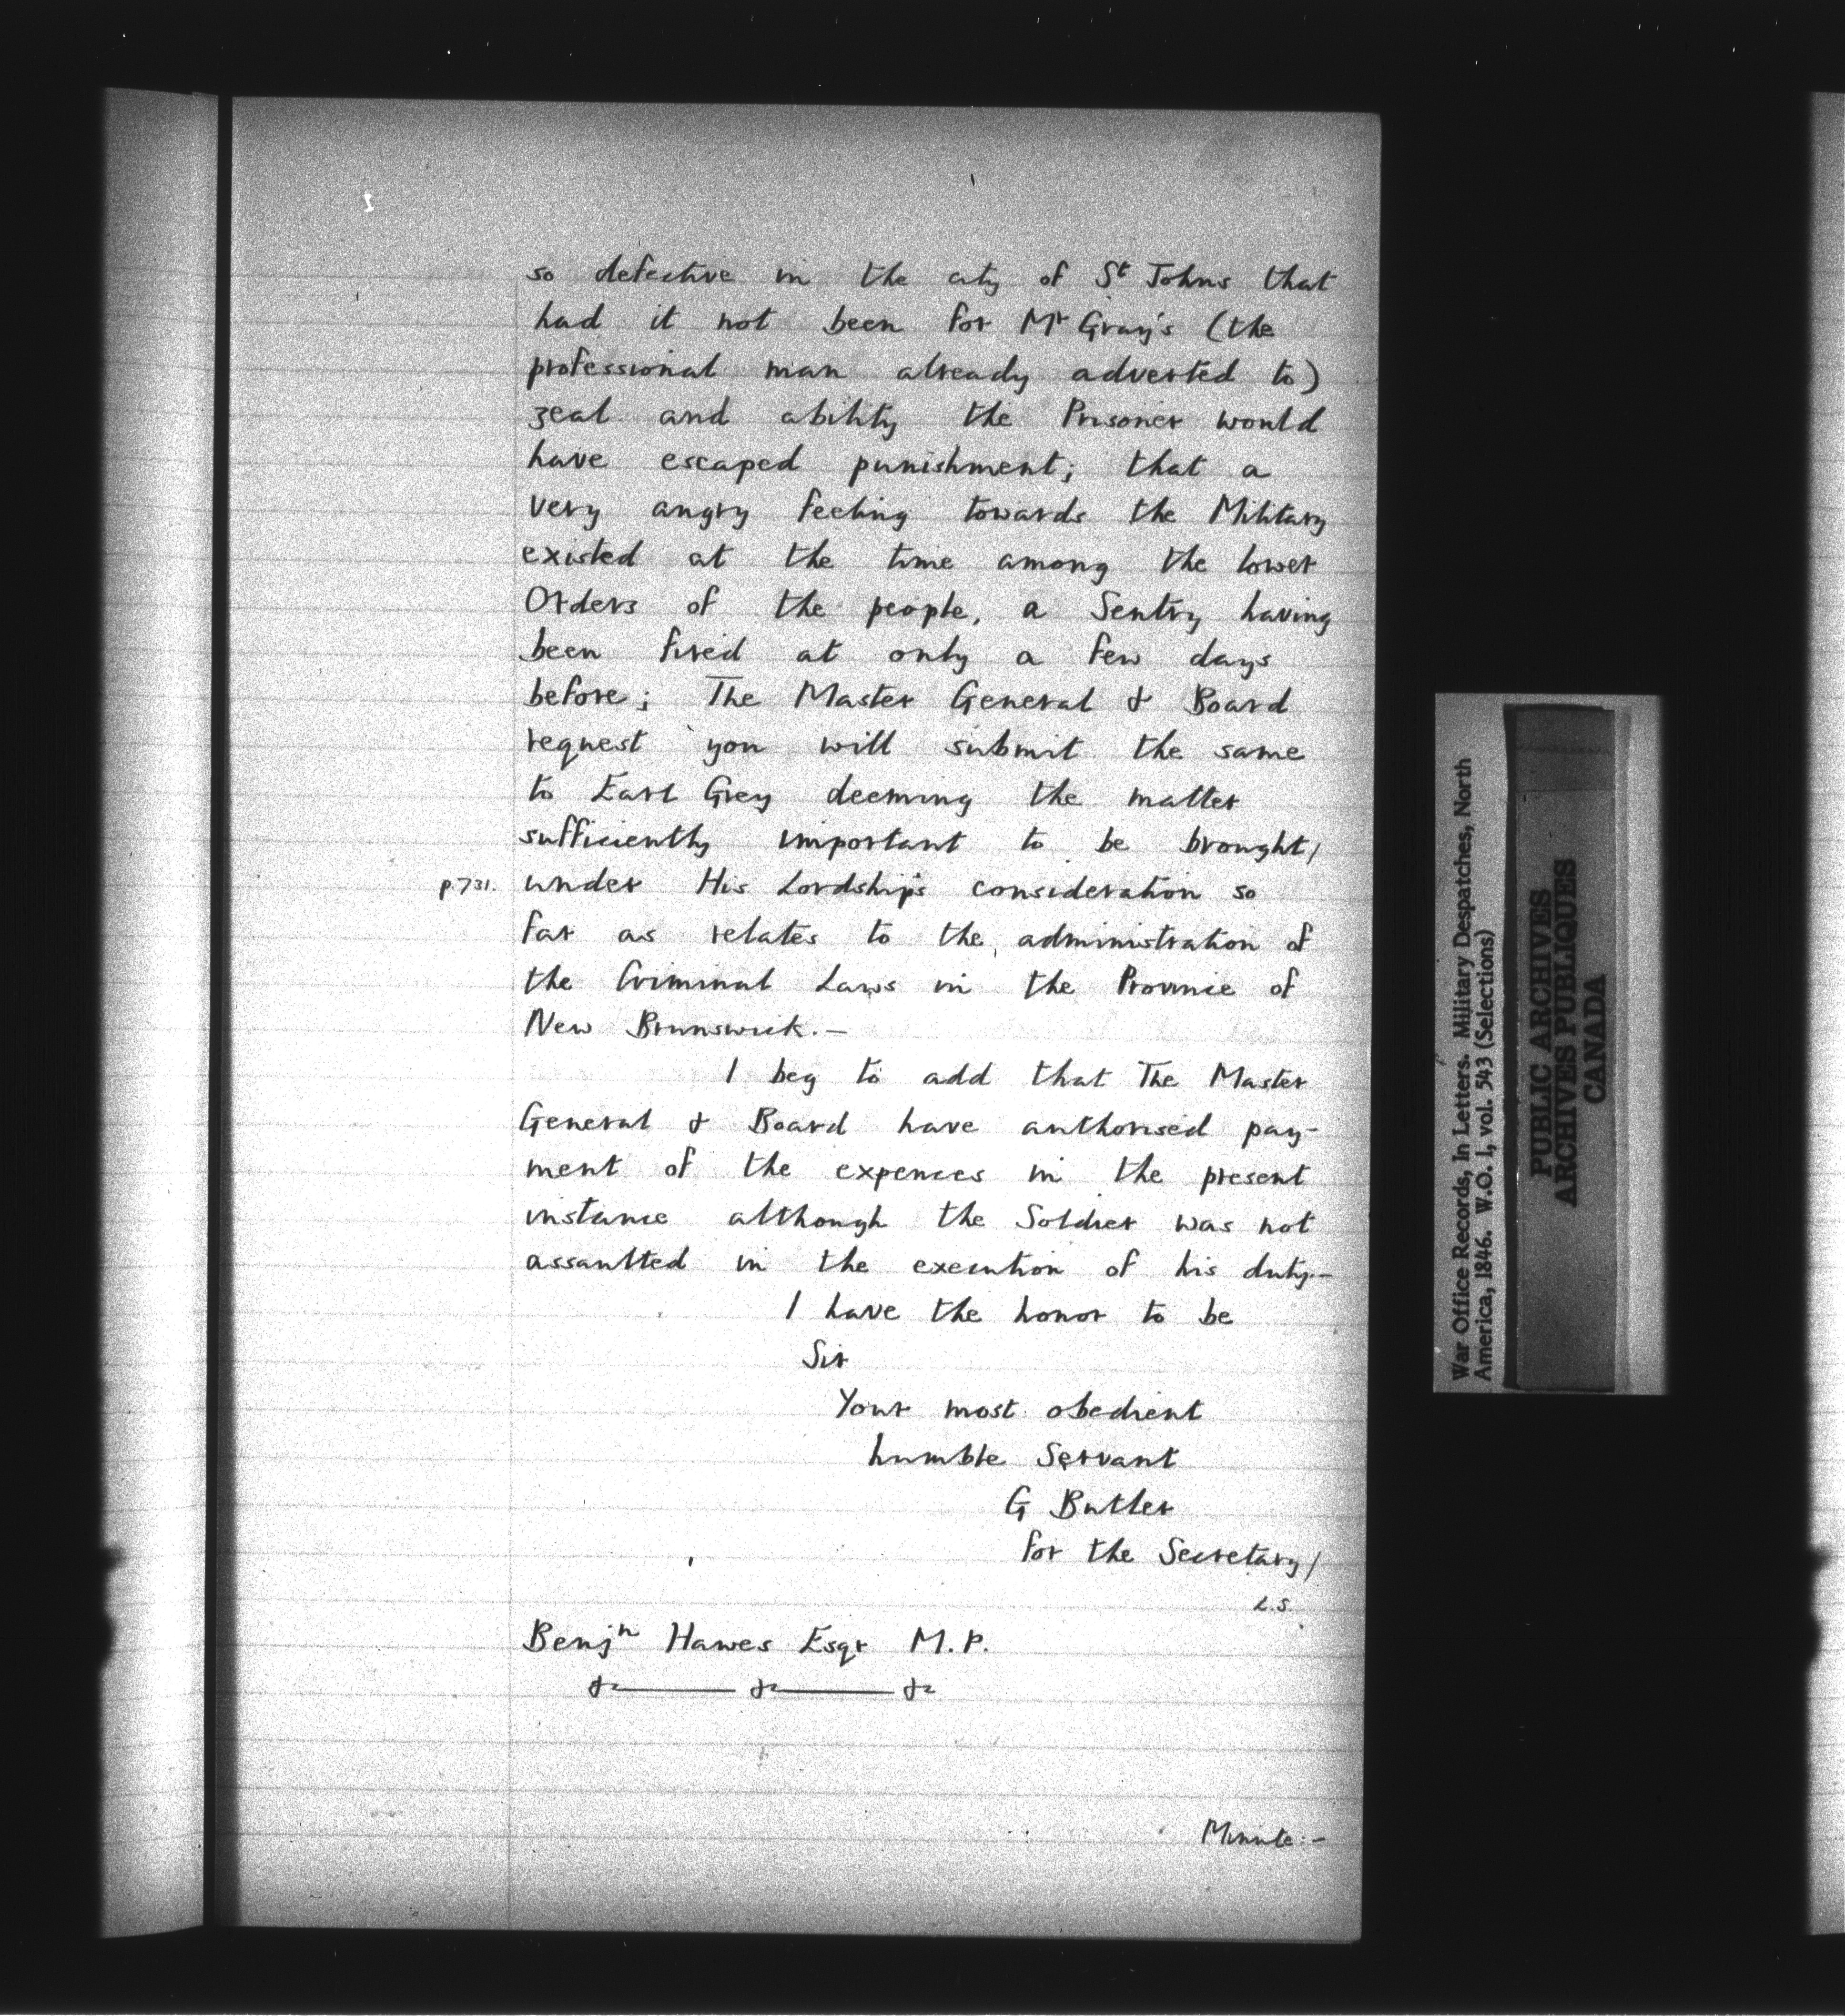 so defective in the city of St Johns that
had it not been for Mr Gray's (the
professional man already adverted to)
zeal and ability the Prisoner would
have escaped punishment; that a
very angry feeling towards the Military
existed at the time among the lower
Orders of the people, a Sentry having
been fired at only a few days
before; The Master General & Board
request you will submit the same
to Earl Grey deeming the matter
sufficiently important to be brought/
p.731. under His Lordship's consideration so
far as relates to the administration of
the Criminal Laws in the Province of
New Brunswick.—
I beg to add that The Master
General & Board have authorised pay-
ment of the expences in the present
instance although the Soldier was not
assaulted in the execution of his duty.—
I have the honor to be
Sir
Your most obedient
humble Servant
G Butler
for the Secretary/
L.S.
Benjn Hawes Esqr M.P.
&c ——— &c ——— &c
Minute:-
War Office Records, In Letters. Military Despatches, North
America, 1846. W.O. 1, vol. 543 (Selections)
PUBLIC ARCHIVES
ARCHIVES PUBLIQUES
CANADA